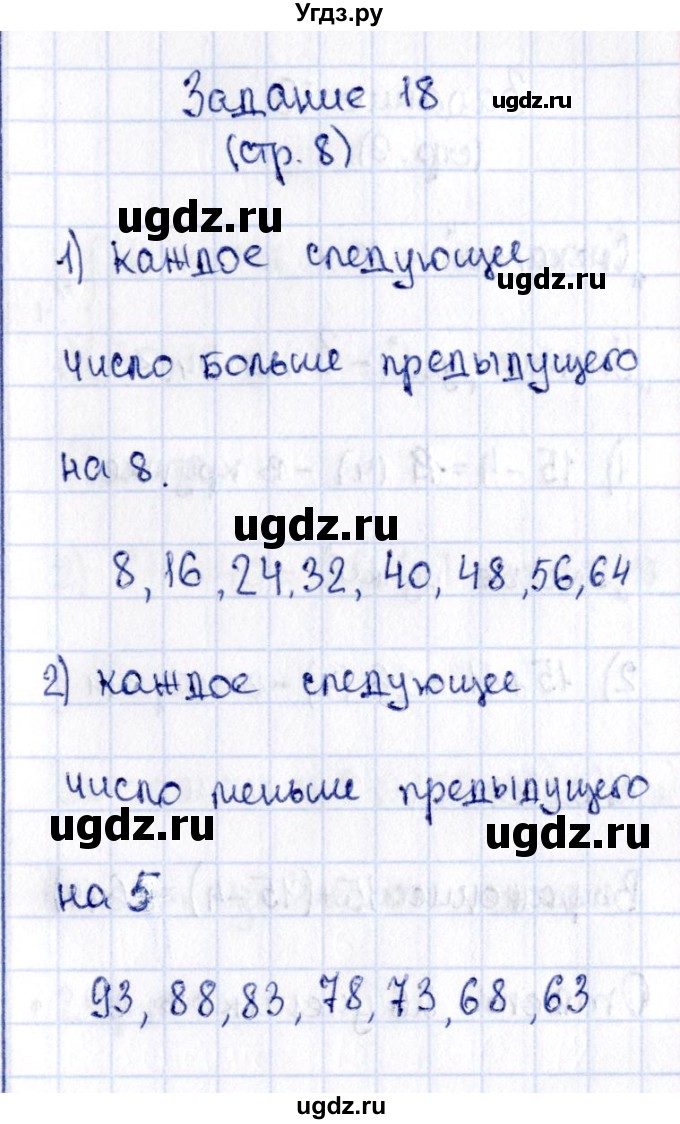 Угдз.ру
Задание 18
ugdz.ru
(стр. 8)
ugdz.ru
1) каждое следующее
ugdz.ru
число больше предыдущего
на 8.
ugdz.ru
8, 16, 24, 32, 40, 48, 56, 64
2) каждое следующее
число меньше предыдущего
ugdz.ru
ugdz.ru
на 5
93, 88, 83, 78, 73, 68, 63
ugdz.ru